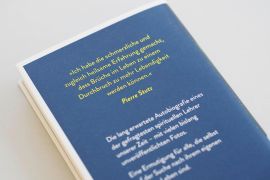 »Ich habe die schmerzliche und
zugleich heilsame Erfahrung gemacht,
dass Brüche im Leben zu einem
Durchbruch zu mehr Lebendigkeit
werden können.«
Pierre Stutz
Die lang erwartete Autobiografie eines
der gefragtesten spirituellen Lehrer
unserer Zeit – mit vielen bislang
unveröffentlichten Fotos.
Eine Ermutigung für alle, die selbst
auf der Suche nach ihrem eigenen
Leben sind.